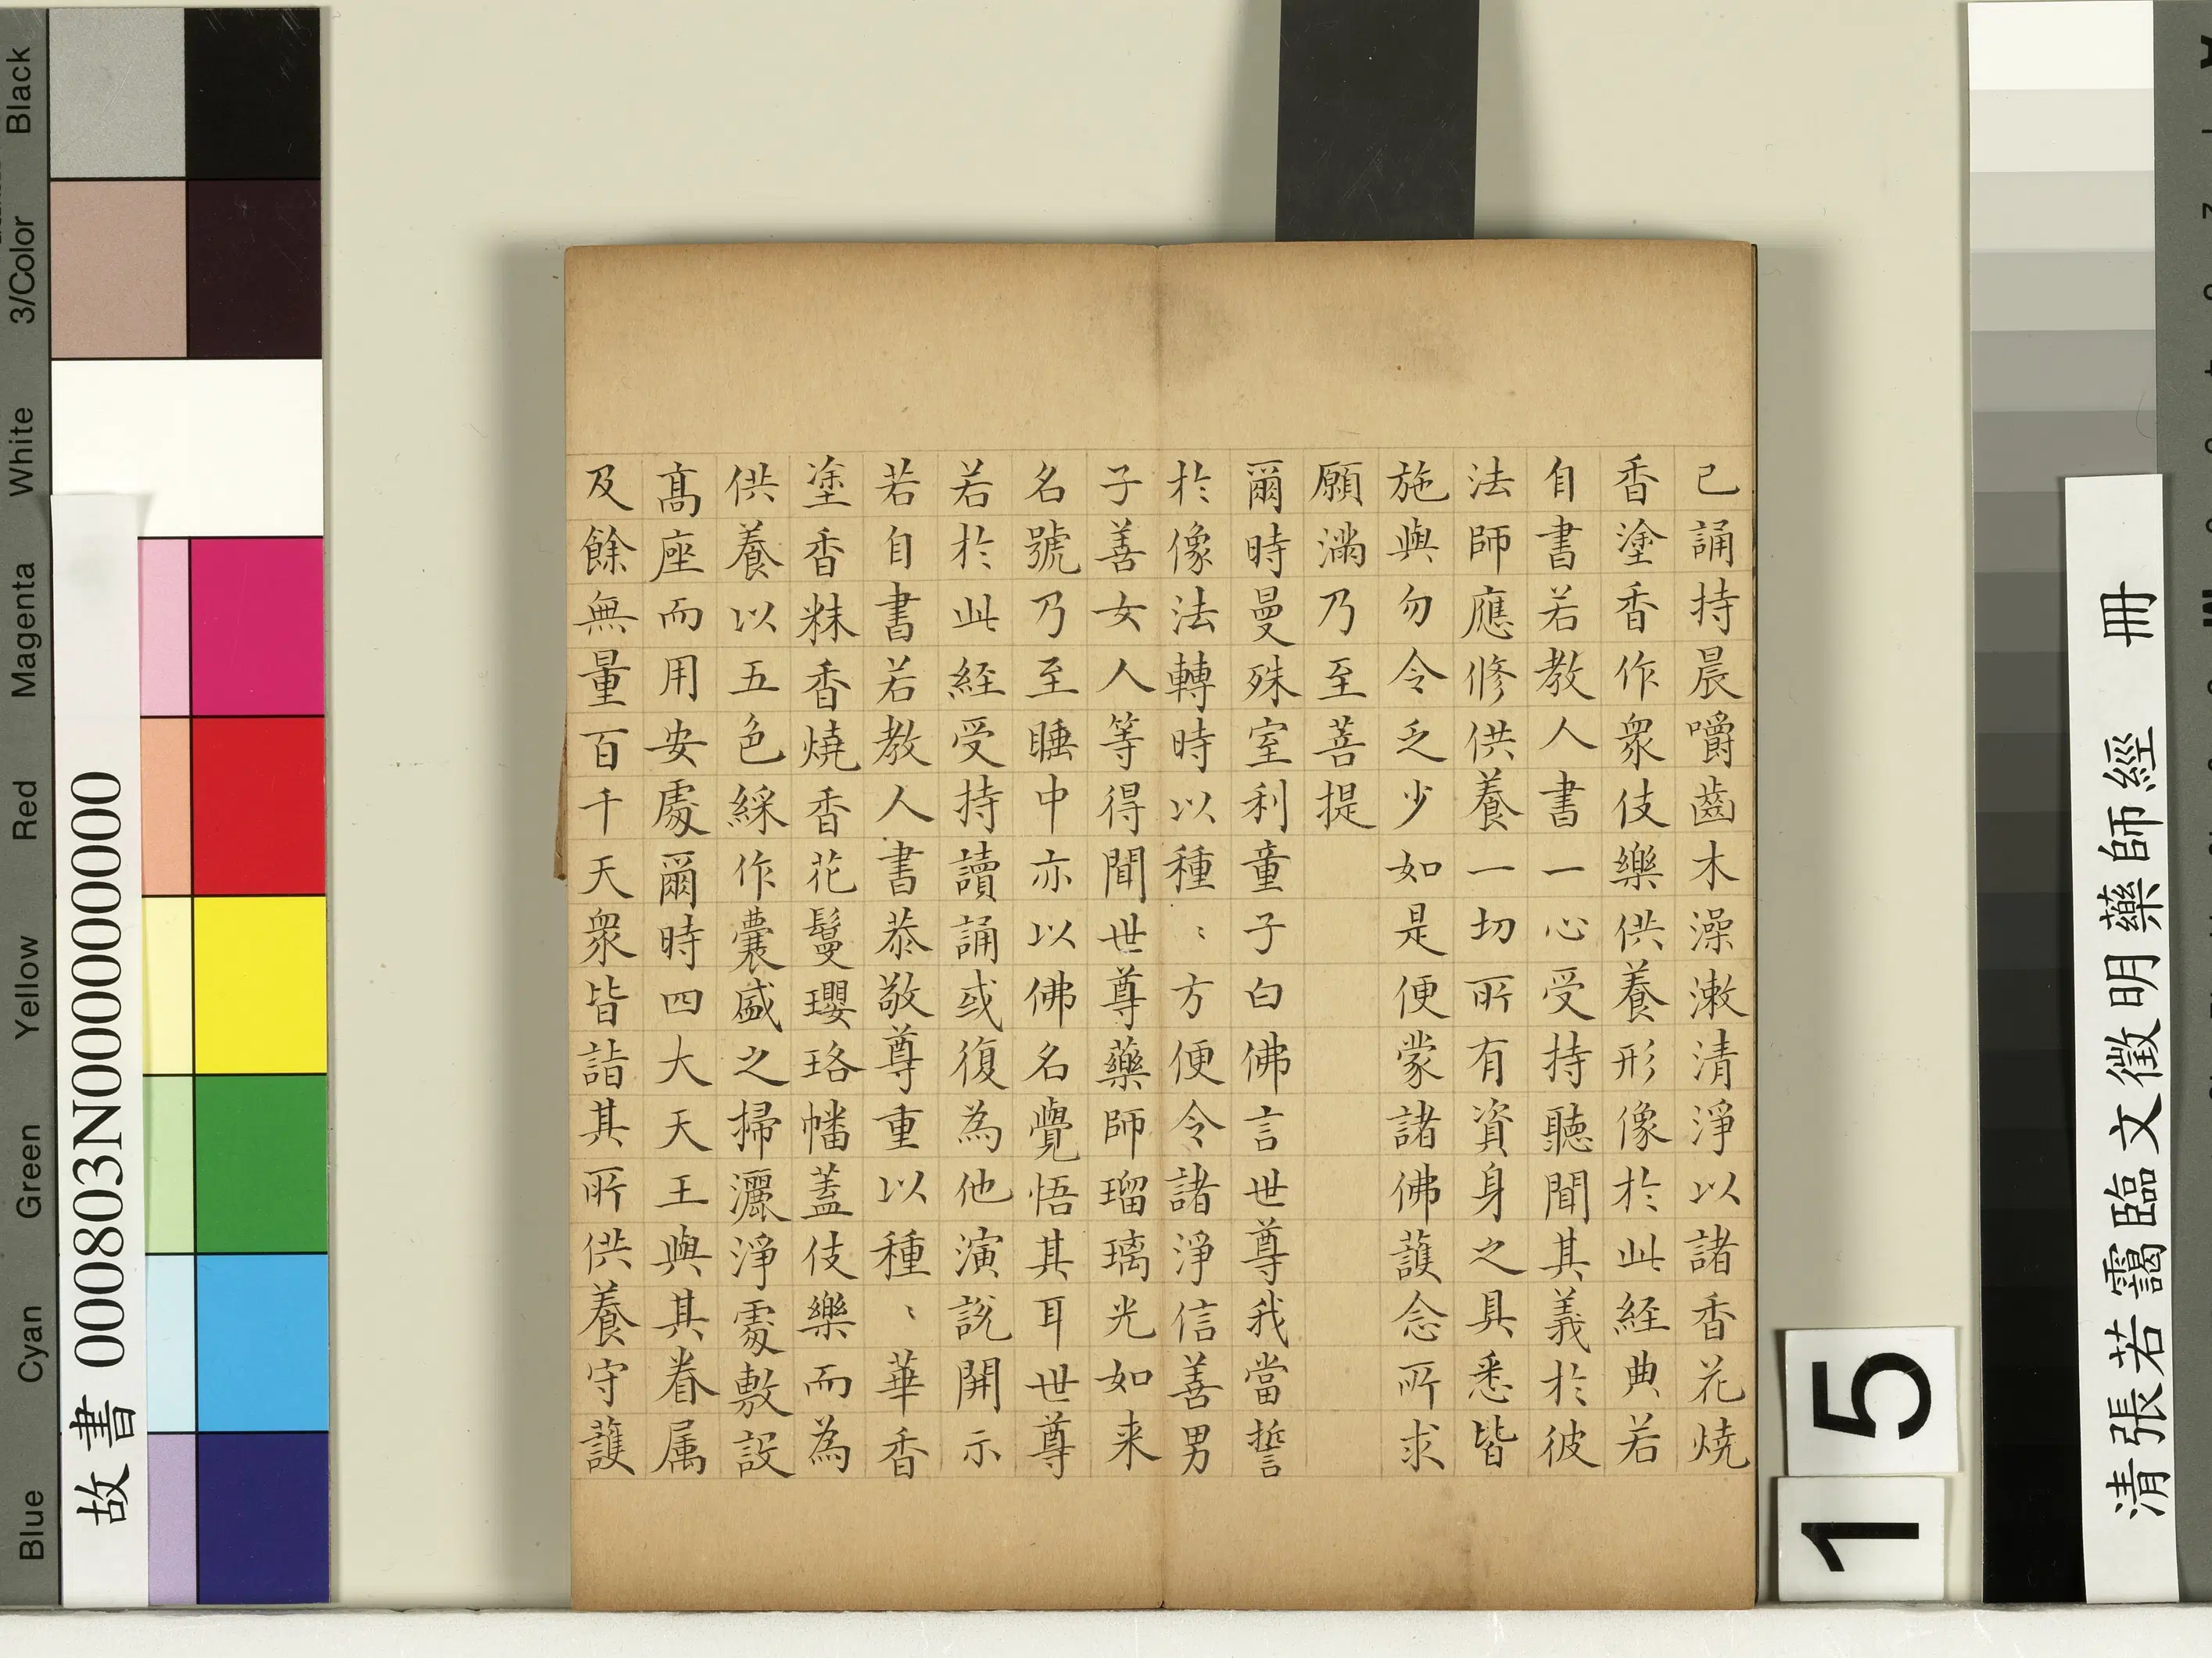 已誦持晨嚼齒木澡漱清淨以諸香花燒
香塗香作衆伎樂供養形像於此経典若
自書若教人書一心受持聽聞其義於彼
法師應修供養一切所有資身之具悉皆
施與勿令乏少如是便蒙諸佛護念所求
願滿乃至菩提
爾時曼殊室利童子白佛言世尊我當誓
於像法轉時以種〻方便令諸淨信善男
子善女人等得聞世尊藥師瑠璃光如来
名號乃至睡中亦以佛名覺悟其耳世尊
若於此経受持讀誦或復為他演說開示
若自書若教人書恭敬尊重以種〻華香
塗香粖香燒香花鬘瓔珞幡蓋伎樂而為
供養以五色綵作囊盛之掃灑淨處敷設
髙座而用安處爾時四大天王與其眷属
及餘無量百千天衆皆詣其所供養守護
清張若靄臨文徵明藥師經 冊
15
故書 000803N000000000
Blue Cyan Green Yellow Red Magenta White 3/Color Black